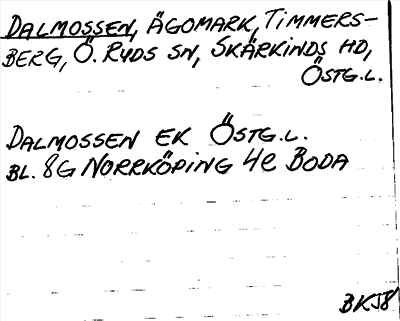 DALMOSSEN, ÄGOMARK, TIMMERS-
BERG, Ö. RYDS SN, SKÄRKINDS HD,
ÖSTG.L.
DALMOSSEN EK ÖSTG.L.
BL. 8G NORRKÖPING 4e BODA
BKJ8